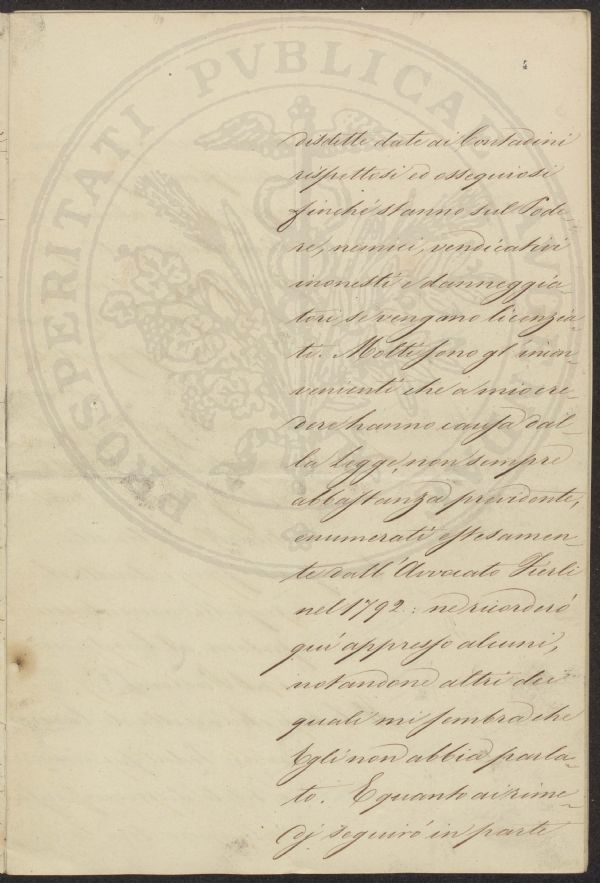 4
disdette date ai Contadini
rispettosi ed ossequiosi
finchè stanno sul Pode-
re, nemici, vendicativi
inonesti e danneggia-
tori se vengano licenzia-
ti. Molti sono gl'incon-
venienti che a mio cre-
dere hanno causa dal-
la Legge, non sempre
abbastanza previdente,
enumerati estesamen-
te dall'Avvocato Fierli
nel 1792: ne ricorderò
qui appresso alcuni,
notandone altri dei
quali mi sembra che
Egli non abbia parla-
to. E quanto ai rime-
dj seguirò in parte
PROSPERITATI PVBLICAE